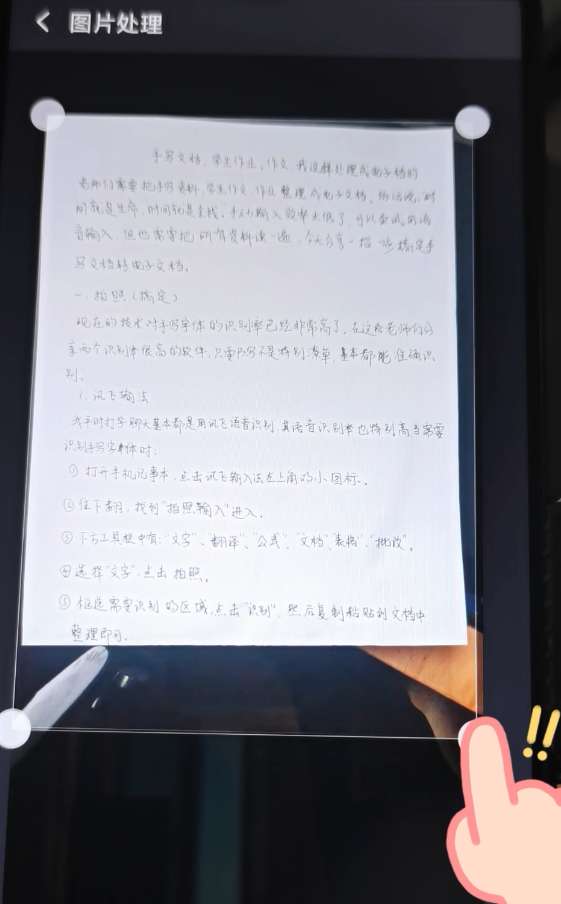 图片处理
手写文档、学生作业、作文 我这样处理成电子档的
老师们需要把手写资料、学生作文、作业整理成电子文档，俗话说，时
间就是生命，时间就是金钱。手动输入效率太低了，可以尝试用语
音输入，但也需要把所有资料读一遍，今天分享一招一步搞定手
写文档转电子文档。
一、拍照（搞定）
现在的技术对手写字体的识别率已经非常高了，在这给老师们分
享两个识别率很高的软件，只要书写不是特别潦草，基本都能准确识
别。
1. 讯飞输入法
我平时打字聊天基本都是用讯飞语音识别，其语音识别率也特别高当需要
识别手写字体时：
① 打开手机记事本，点击讯飞输入法左上角的小图标。
② 往下翻，找到"拍照输入"进入。
③ 下方工具栏中有："文字"、"翻译"、"公式"、"文档"、"表格"、"批改"。
④ 选择"文字"，点击拍照。
⑤ 框选需要识别的区域，点击"识别"，然后复制粘贴到文档中
整理即可。
!!